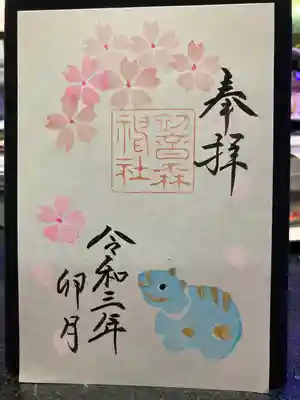 奉拝
初音森
神社
令和三年
卯月